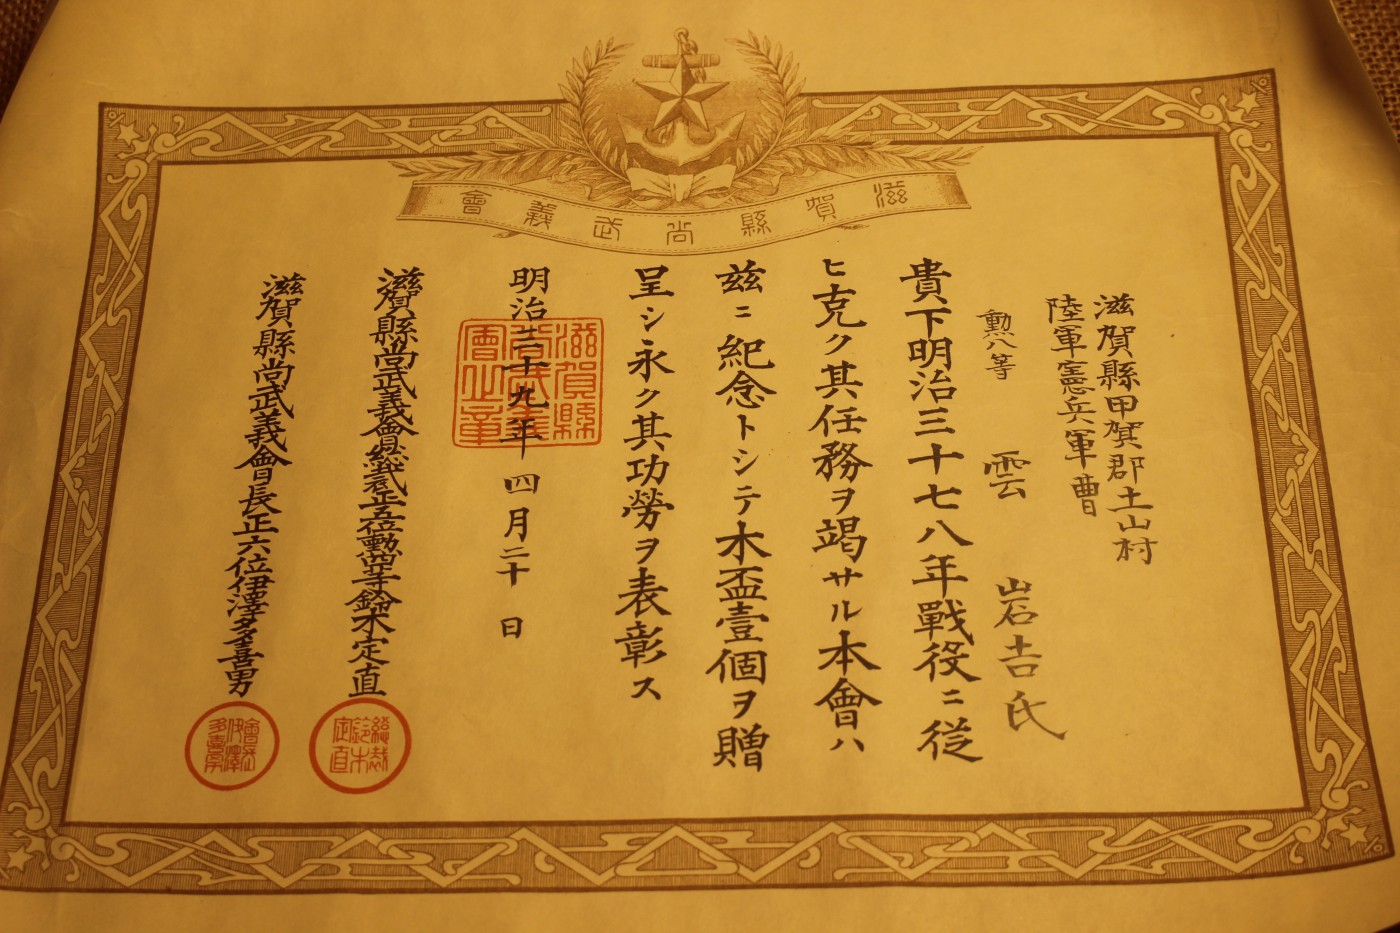 滋賀縣尚武義會
滋賀縣甲賀郡土山村
陸軍憲兵軍曹
勲八等 雲 岩吉氏
貴下明治三十七八年戰役ニ從
ヒ克ク其任務ヲ竭サル本會ハ
茲ニ紀念トシテ木盃壹個ヲ贈
呈シ永ク其功勞ヲ表彰ス
明治三十九年四月二十日
滋賀縣尚武義會之章
滋賀縣尚武義會總裁正五位勳四等鈴木定直
總裁鈴木定直
滋賀縣尚武義會長正六位伊澤多喜男
會長伊澤多喜男